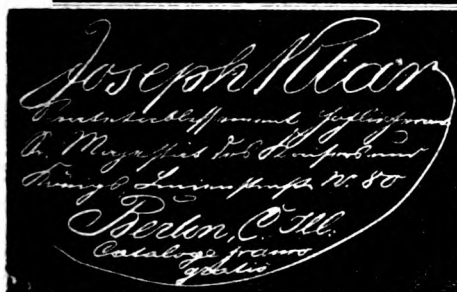 Joseph Klar
Hoflieferant
Sr. Majestät des Kaisers und
Königs Linienstraße N. 80
Berlin, C. Ill.
Cataloge franco
gratis